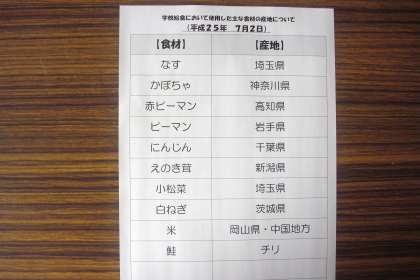 学校給食において使用した主な食材の産地について
(平成25年　7月2日)
【食材】 【産地】
なす 埼玉県
かぼちゃ 神奈川県
赤ピーマン 高知県
ピーマン 岩手県
にんじん 千葉県
えのき茸 新潟県
小松菜 埼玉県
白ねぎ 茨城県
米 岡山県・中国地方
鮭 チリ